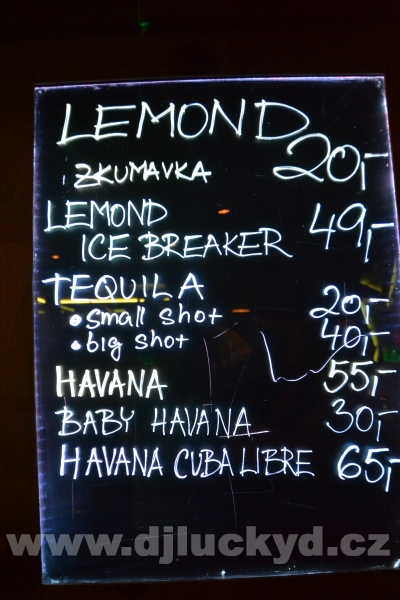 LEMOND
ZKUMAVKA 20,-
LEMOND
ICE BREAKER 49,-
TEQUILA
• small shot 20,-
• big shot 40,-
HAVANA 55,-
BABY HAVANA 30,-
HAVANA CUBA LIBRE 65,-
www.djluckyd.cz